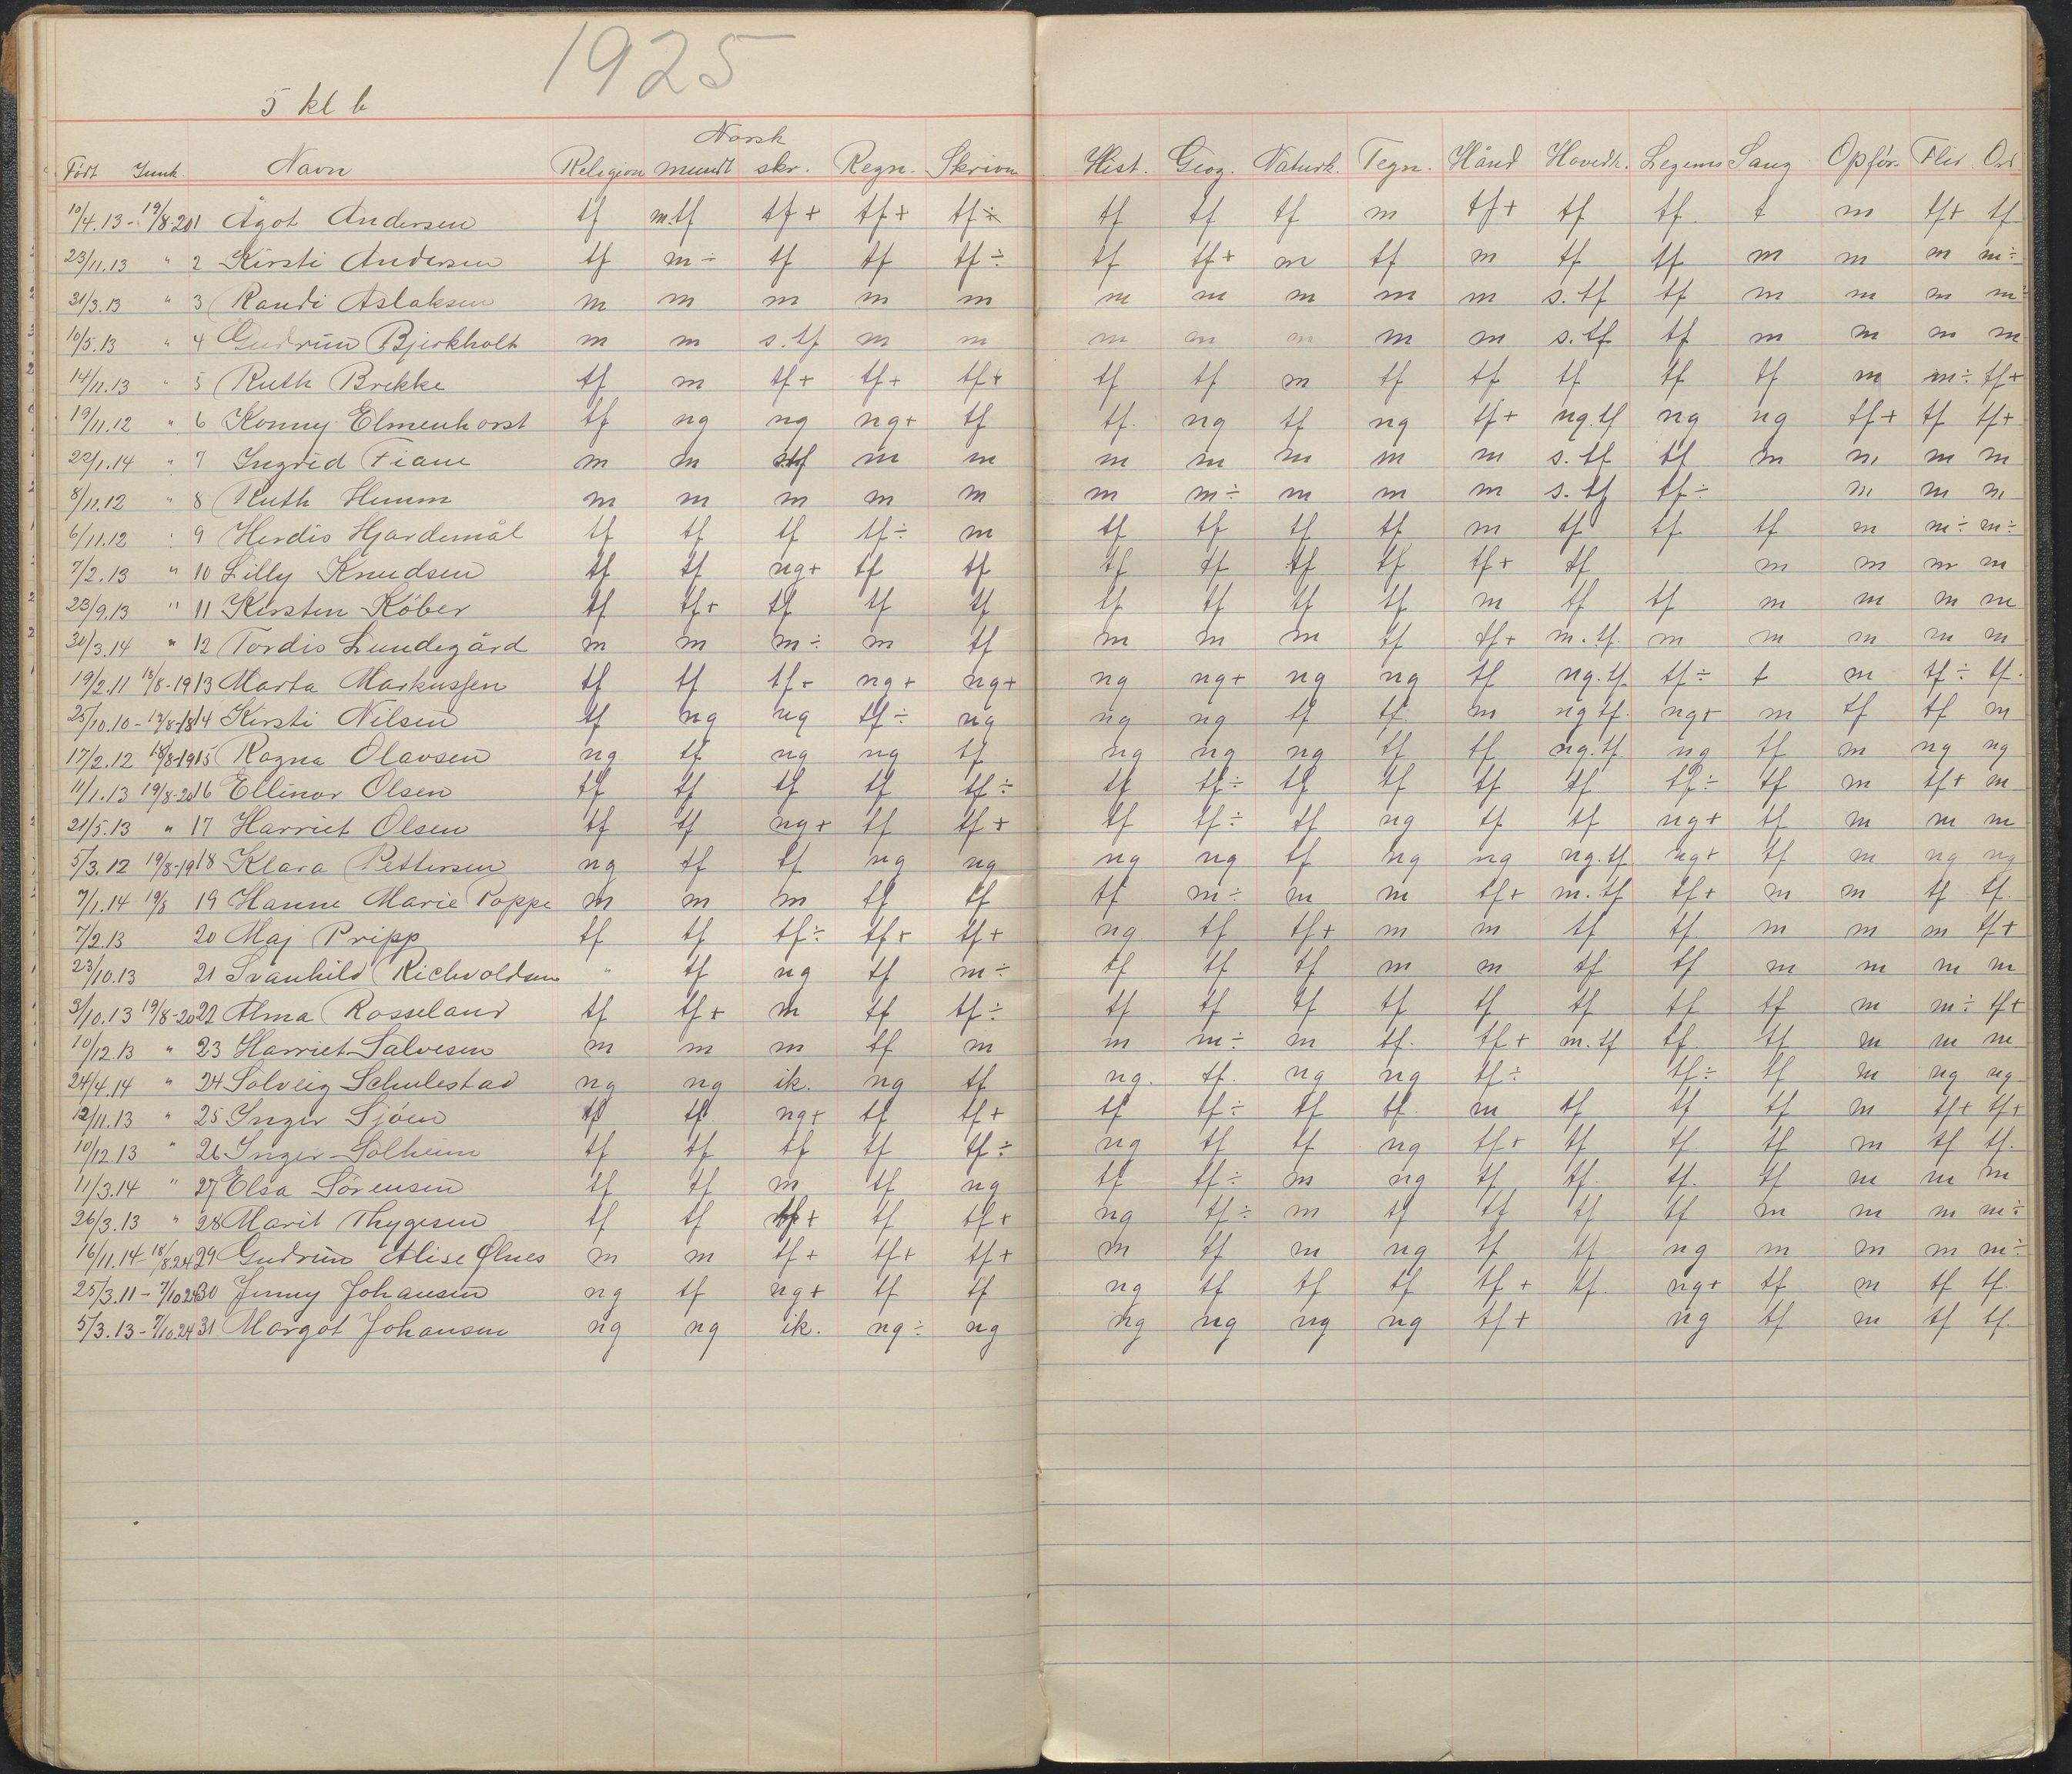 1925
5 kl b
Norsk
Født Innk. Navn Religion mundt skr. Regn. Skrivn Hist. Geog. Naturk. Tegn. Hånd Hovedk. Legems Sang Opfør. Flid Ord
10/4.13 - 19/8-20 1 Ågot Andersen tf m.tf tf+ tf+ tf÷ tf tf tf m tf+ tf tf t m tf+ tf
23/11.13 " 2 Kirsti Andersen tf m÷ tf tf tf÷ tf tf+ m tf m tf tf m m m m÷
31/3.13 " 3 Randi Aslaksen m m m m m m m m m m s.tf tf m m m m
10/5.13 " 4 Gudrun Bjerkholt m m s.tf m m m m m m m s.tf tf m m m m
14/11.13 " 5 Ruth Brekke tf m tf+ tf+ tf+ tf tf m tf tf tf tf tf m m÷ tf+
19/11.12 " 6 Konny Elmenhorst tf ng ng ng+ tf tf. ng tf ng tf+ ng.tf ng ng tf+ tf tf+
22/1.14 " 7 Ingrid Fiane m m s.tf m m m m m m m s.tf tf m m m m
8/11.12 " 8 Ruth Humm m m m m m m m÷ m m m s.tf tf÷ m m m
6/11.12 " 9 Herdis Hjardemål tf tf tf tf÷ m tf tf tf tf m tf tf tf m m÷ m÷
7/2.13 " 10 Lilly Knudsen tf tf ng+ tf tf tf tf tf tf tf+ tf m m m m
23/9.13 " 11 Kirsten Köber tf tf+ tf tf tf tf tf tf tf m tf tf m m m m
30/3.14 " 12 Tordis Lundegård m m m÷ m tf m m m tf tf+ m.tf m m m m m
19/2.11 18/8-19 13 Marta Markussen tf tf tf- ng+ ng+ ng ng+ ng ng tf ng.tf tf÷ t m tf÷ tf.
25/10.10 - 19/8-18 14 Kirsti Nilsen tf ng ng tf÷ ng ng ng tf tf m ng tf. ng+ m tf tf m
17/2.12 18/8-19 15 Ragna Olavsen ng tf ng ng tf ng ng ng tf tf ng.tf ng tf m ng ng
11/1.13 19/8-20 16 Ellinor Olsen tf tf tf tf tf÷ tf tf÷ tf tf tf tf tf÷ tf m tf+ m
21/5.13 " 17 Harriet Olsen tf tf ng+ tf tf+ tf tf÷ tf ng tf tf ng+ tf m m m
5/3.12 19/8-19 18 Klara Pettersen ng tf tf ng ng ng ng tf ng ng ng.tf ng+ tf m ng ng
7/1.14 19/8 19 Hanne Marie Poppe m m m tf tf tf m÷ m m tf+ m.tf tf+ m m tf tf.
7/2.13 20 Maj Pripp tf tf tf÷ tf+ tf+ ng tf tf+ m m tf tf. m m m tf+
23/10.13 21 Svanhild Richvoldsen " tf ng tf m÷ tf tf tf m m tf tf m m m m
3/10.13 19/8-20 22 Alma Rosseland tf tf+ m tf tf÷ tf tf tf tf tf tf tf tf m m÷ tf+
10/12.13 " 23 Harriet Salvesen m m m tf m m m÷ m tf. tf+ m.tf tf tf m m m
24/4.14 " 24 Solveig Schulestad ng ng ik. ng tf ng. tf. ng ng tf÷ tf÷ tf m ng ng
12/11.13 " 25 Inger Sjöen tf tf ng+ tf tf+ tf tf÷ tf tf. m tf tf tf m tf+ tf+
10/12.13 " 26 Inger Solheim tf tf tf tf tf÷ ng tf tf ng tf+ tf tf. tf m tf tf.
11/3.14 " 27 Elsa Sørensen tf tf m tf ng tf tf÷ m ng tf tf. tf. tf m m m
26/3.13 " 28 Marit Thygesen tf tf tf+ tf tf+ ng tf÷ m tf tf tf tf m m m m÷
16/11.14 - 18/8.24 29 Gudrun Alise Ølnes m m tf+ tf+ tf+ m tf m ng tf tf ng m m m m÷
25/3.11 - 7/10 24 30 Jenny Johansen ng tf ng+ tf tf ng tf tf tf tf+ tf. ng+ tf m tf tf.
5/3.13 - 7/10.24 31 Margot Johansen ng ng ik. ng÷ ng ng ng ng ng tf+ ng tf m tf tf.